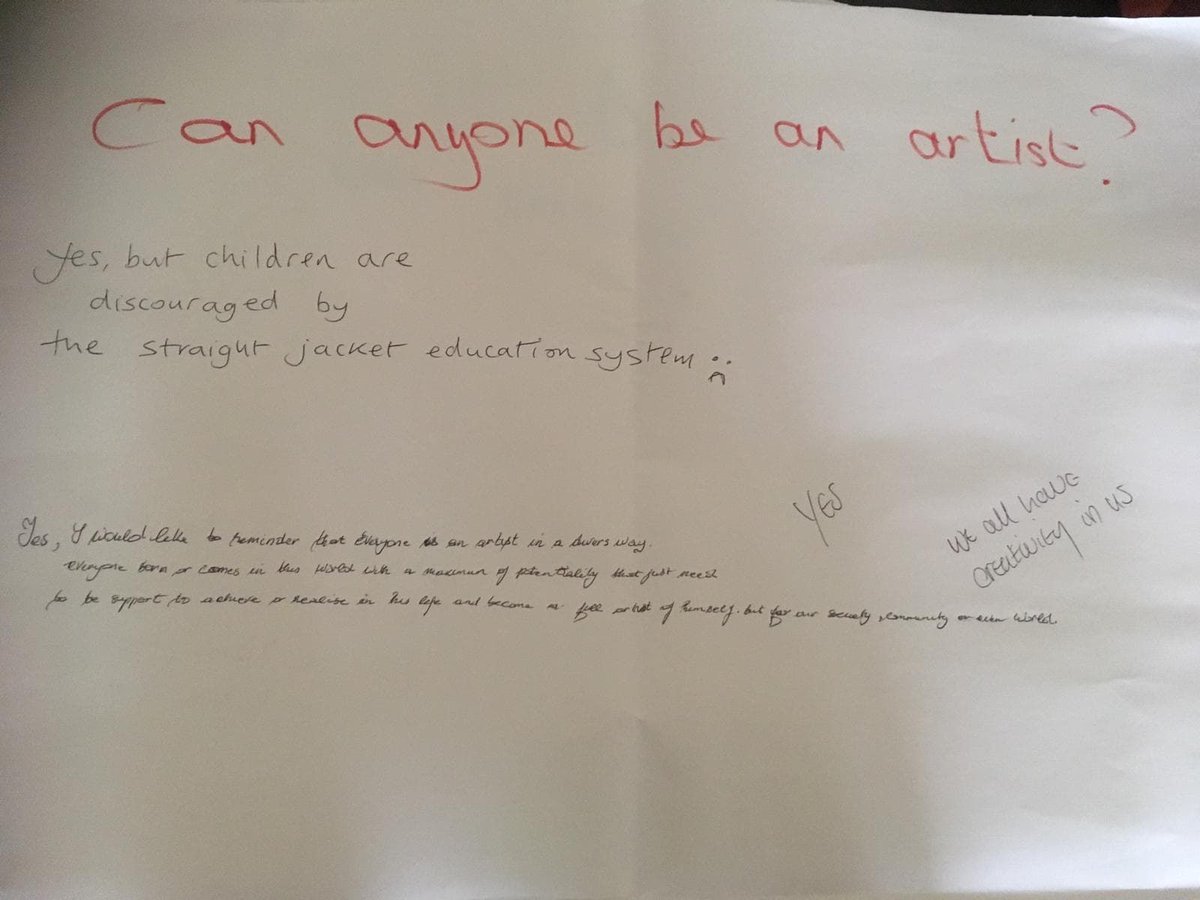 Can anyone be an artist?
Yes, but children are
discouraged by
the straight jacket education system
YES
we all have
creativity in us
Yes, I would like to reminder that Everyone is an artist in a divers way.
Everyone born or comes in this world with a maximum of potentiality that just need
to be support to achieve or realise in his life and become a full artist of himself. but for our society, community or even world.